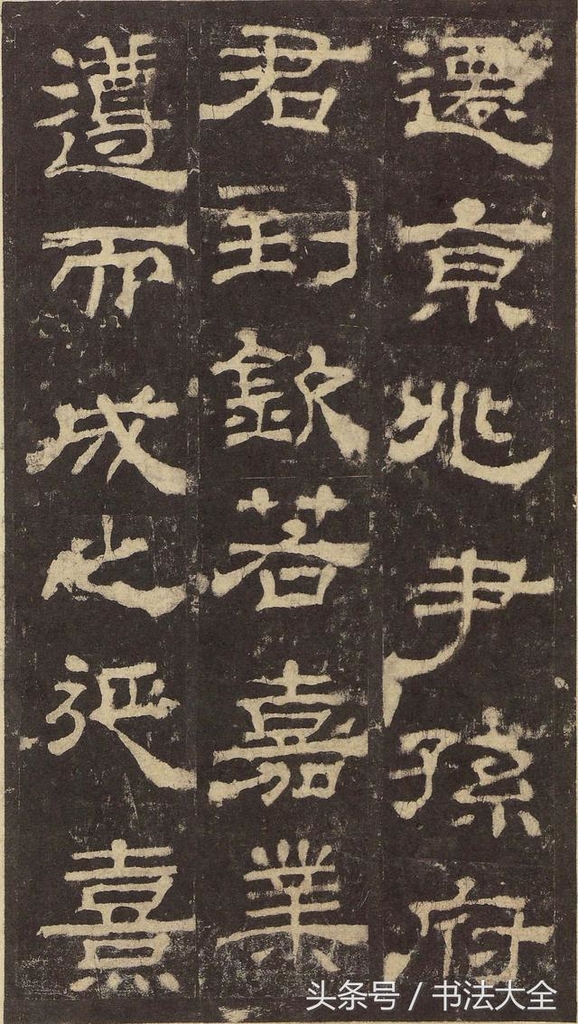 遷京兆尹孫府
君到欽若嘉業
遵而成之延熹
头条号 / 书法大全